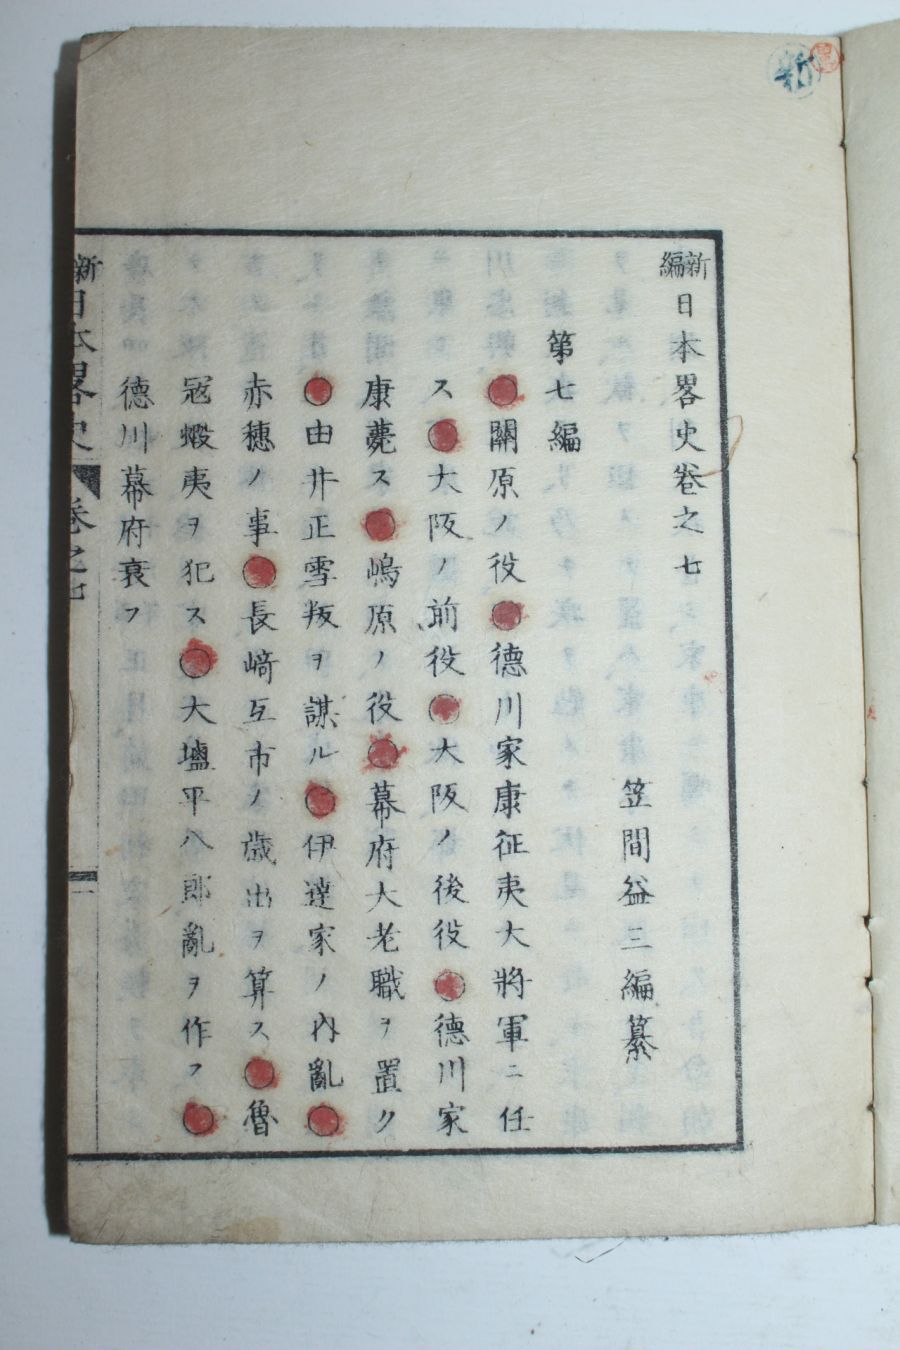 新編日本畧史卷之七
笠間益三編纂
第七編
●關原ノ役●德川家康征夷大將軍ニ任
ス●大阪ノ前役●大阪ノ後役●德川家
康薨ス●嶋原ノ役●幕府大老職ヲ置ク
●由井正雪叛ヲ謀ル●伊達家ノ內亂●
赤穗ノ事●長﨑互市ノ歲出ヲ算ス●魯
寇蝦夷ヲ犯ス●大塩平八郎亂ヲ作ス●
德川幕府衰フ
新日本畧史 卷之七 一
新